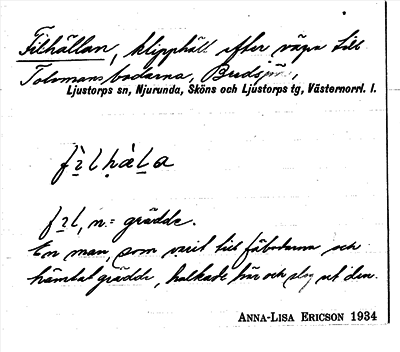 Filhällan, klipphäll efter vägen till
Tolomansbodarna, Budsjön,
Ljustorps sn, Njurunda, Sköns och Ljustorps tg, Västernorrl. l.
fìlhàla
fìl, n = grädde.
En man, som varit till fäbodarna och
hämtat grädde, halkade här och slog ut den.
ANNA-LISA ERICSON 1934